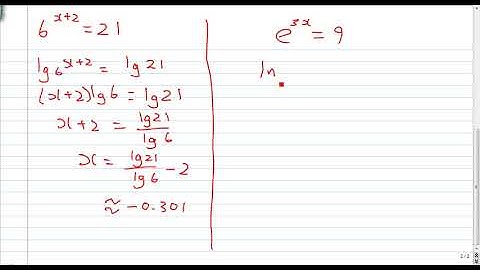 6^{x+2} = 21
lg 6^{x+2} = lg 21
(x+2) lg 6 = lg 21
x + 2 = \frac{lg 21}{lg 6}
x = \frac{lg 21}{lg 6} - 2
≈ -0.301
e^{3x} = 9
ln
2/2